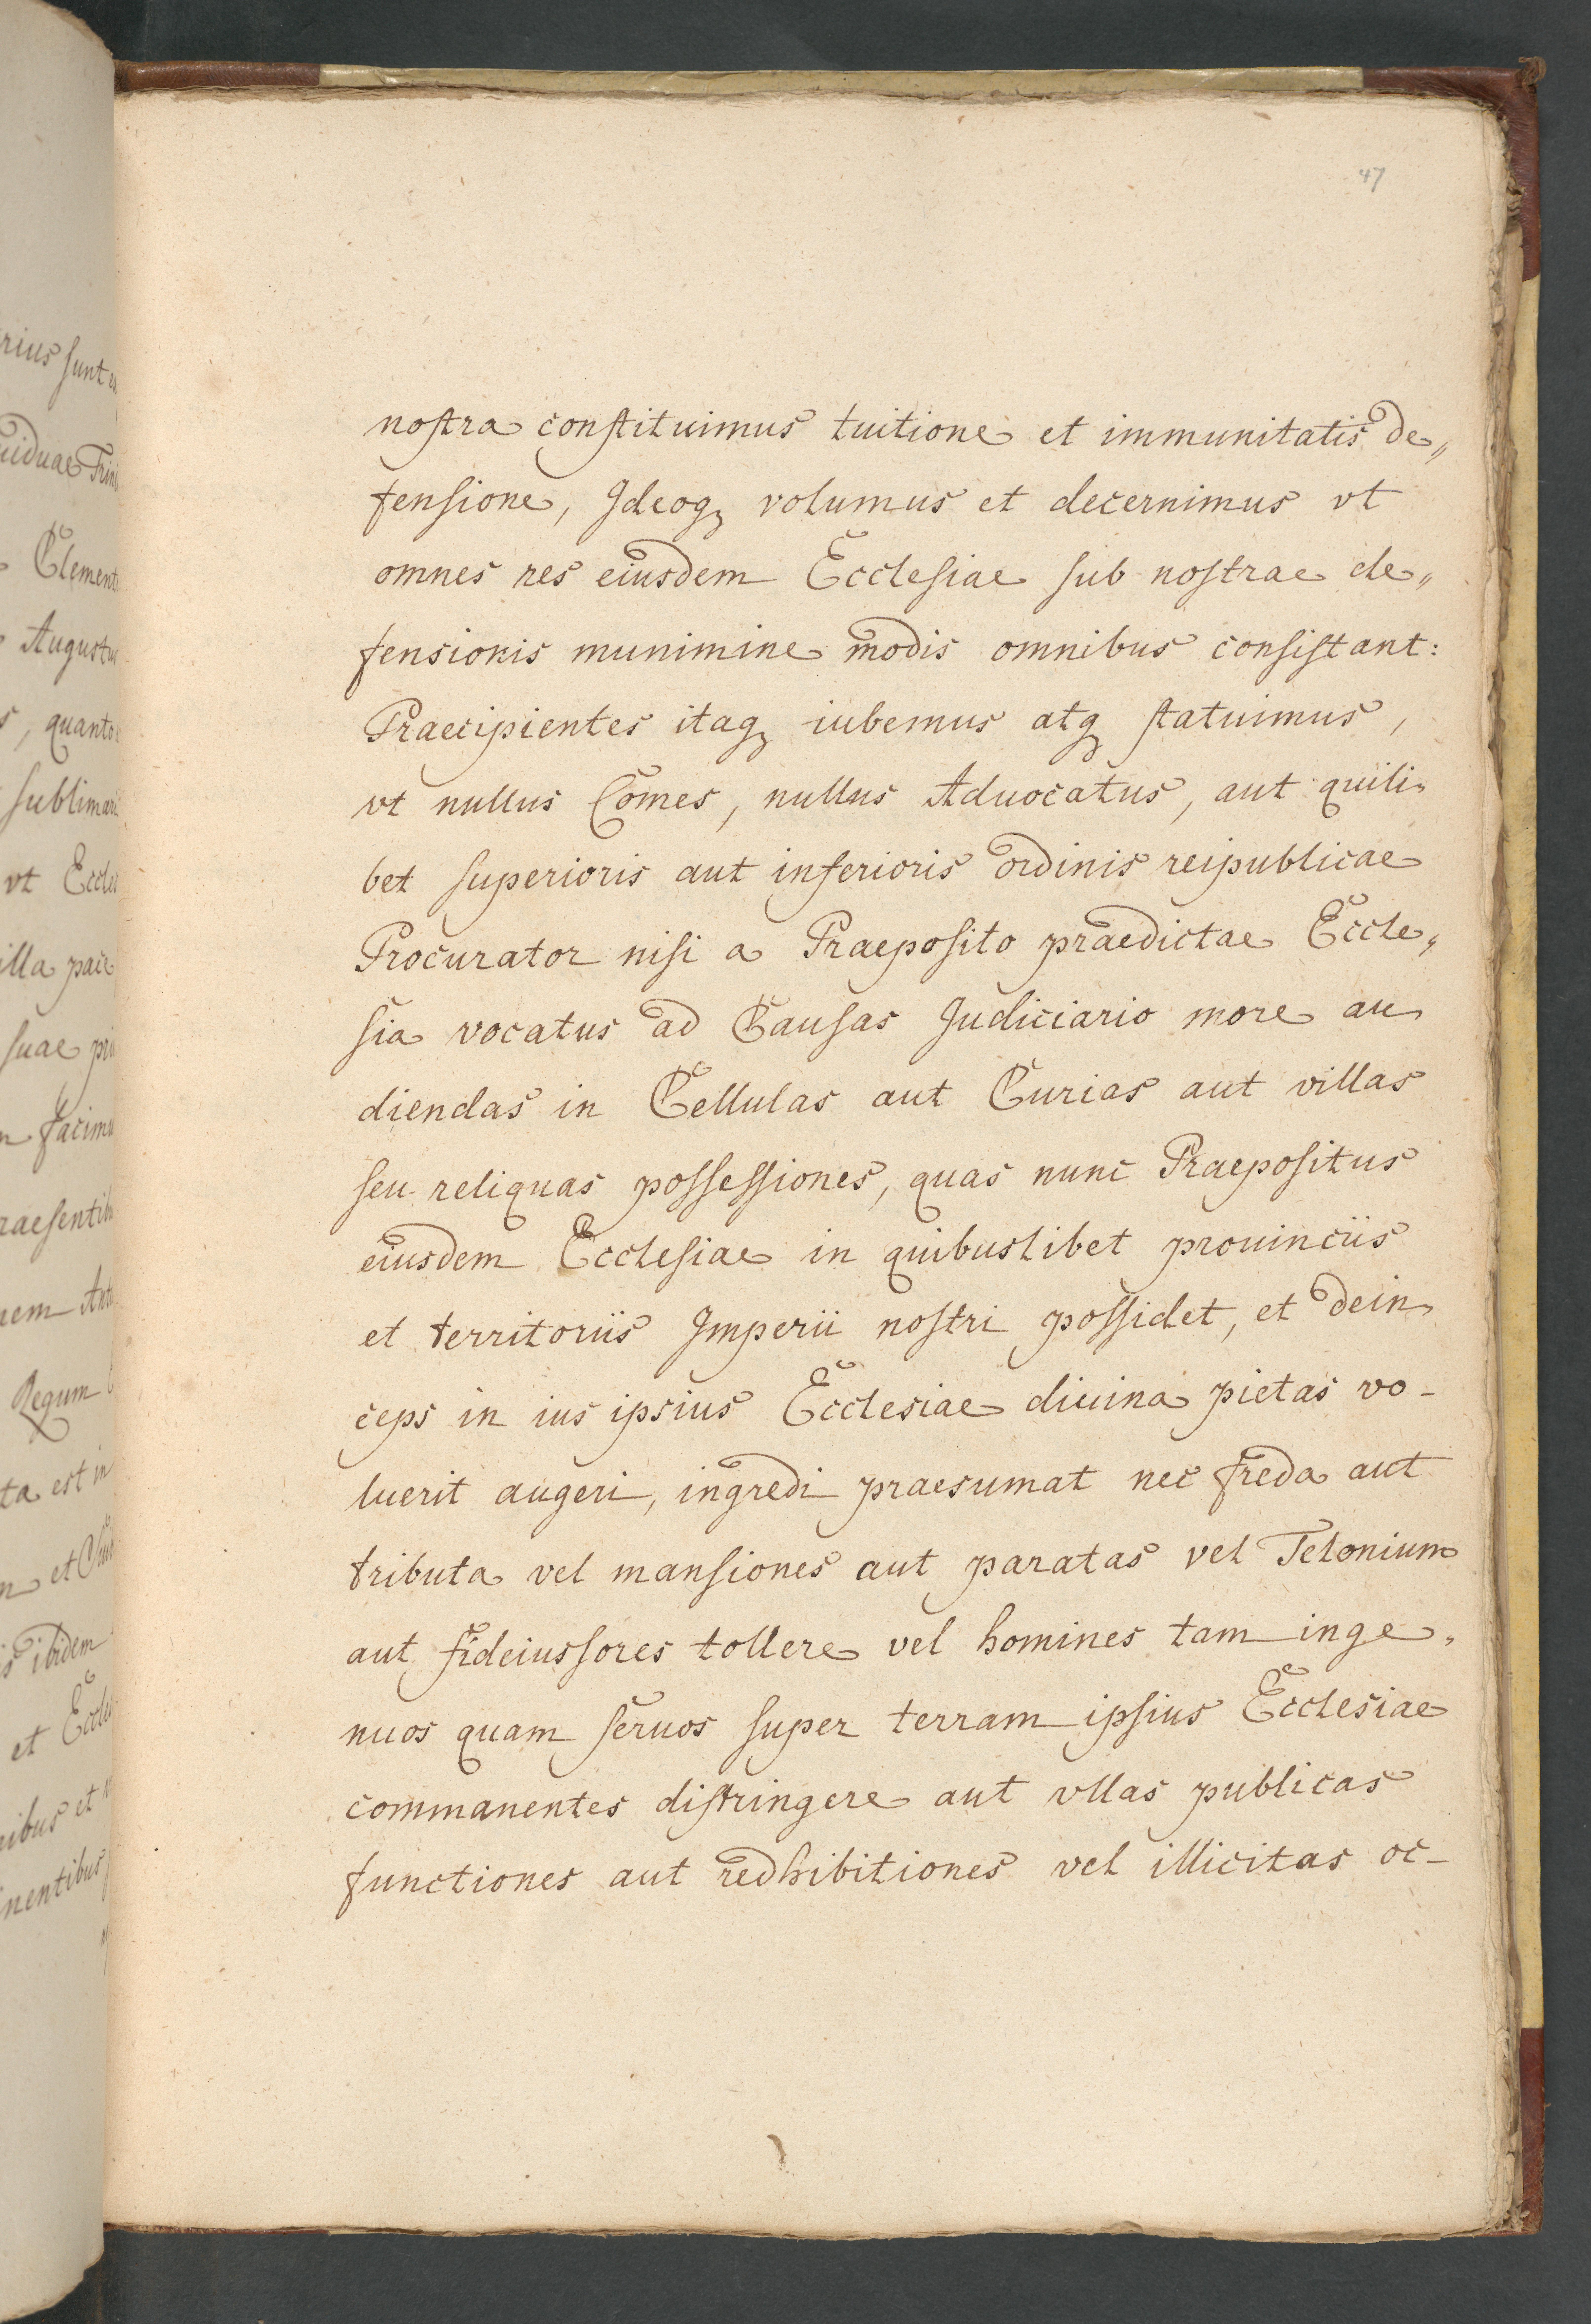 47
nostra constituimus tuitione et immunitatis de„
fensione, Ideoqꝫ volumus et decernimus vt
omnes res eiusdem Ecclesiae sub nostrae de„
fensionis munimine modis omnibus consistant:
Praecipientes itaqꝫ iubemus atqꝫ statuimus,
vt nullus Comes, nullus Aduocatus, aut quili„
bet superioris aut inferioris ordinis reipublicae
Procurator nisi a Praeposito praedictae Eccle„
sia vocatus ad Causas Judiciario more au„
diendas in Cellulas aut Curias aut villas
seu reliquas possessiones, quas nunc Praepositus
eiusdem Ecclesiae in quibuslibet prouinciis
et territoriis Imperii nostri possidet, et dein„
ceps in ius ipsius Ecclesiae diuina pietas vo-
luerit augeri, ingredi praesumat nec freda aut
tributa vel mansiones aut paratas vel Telonium
aut fideiussores tollere vel homines tam inge„
nuos quam seruos super terram ipsius Ecclesiae
commanentes distringere aut vllas publicas
functiones aut redhibitiones vel illicitas oc-